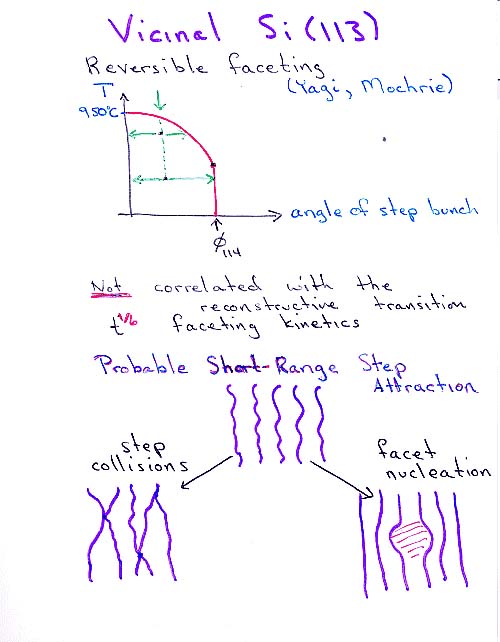 Vicinal Si(113)
Reversible faceting
(Yagi, Mochrie)
T
950°C
angle of step bunch
ϕ114
Not correlated with the
reconstructive transition
t^1/6 faceting kinetics
Probable Short-Range Step
Attraction
step
collisions
facet
nucleation